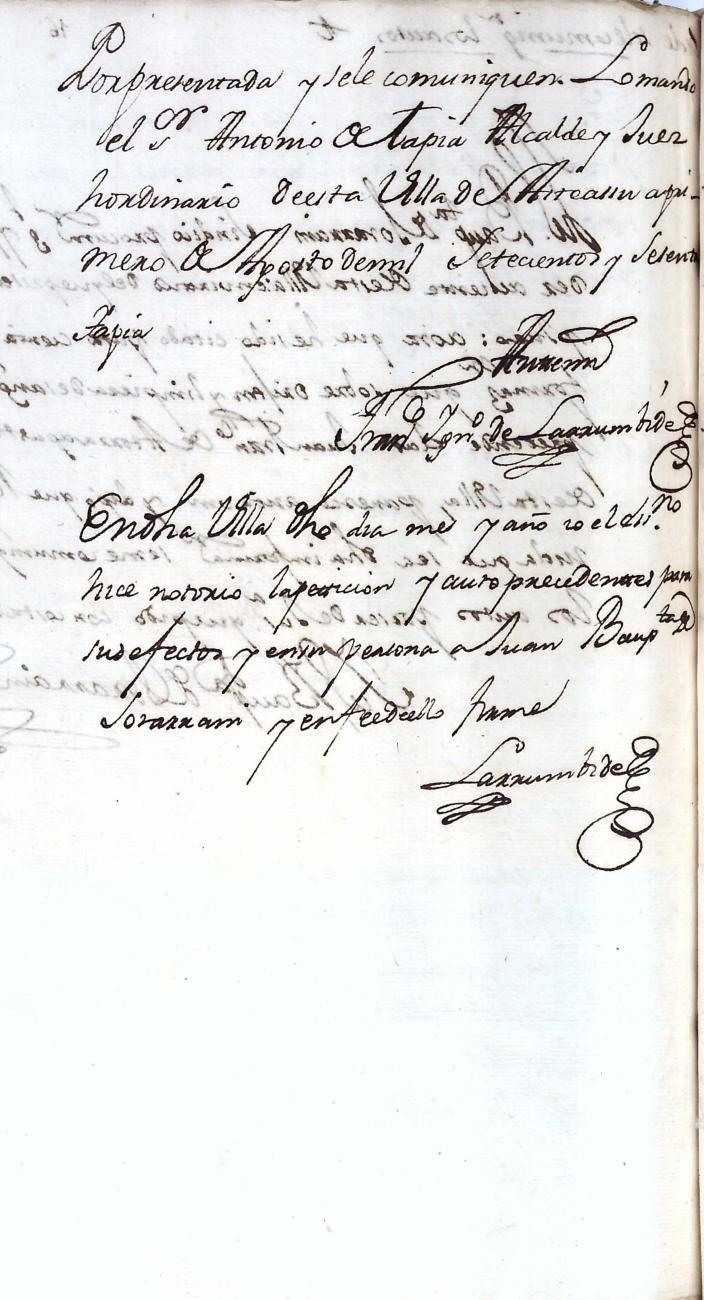 Por presentada y sele comuniquen. Lo mando
el Sor Antonio de tapia Alcalde y Juez
hordinario deesta Villa de Arreassu a pri-
mero de Agosto demil Setecientos y Setenta
Tapia
Antemi
Franco Ygno de Larrumbide
En dha Villa dho dia mes y año io el essno
hice notorio la peticion y auto precedentes para
sus efectos y ensu persona a Juan Baupta de
Sorarrain y enfeedeello firme
Larrumbide